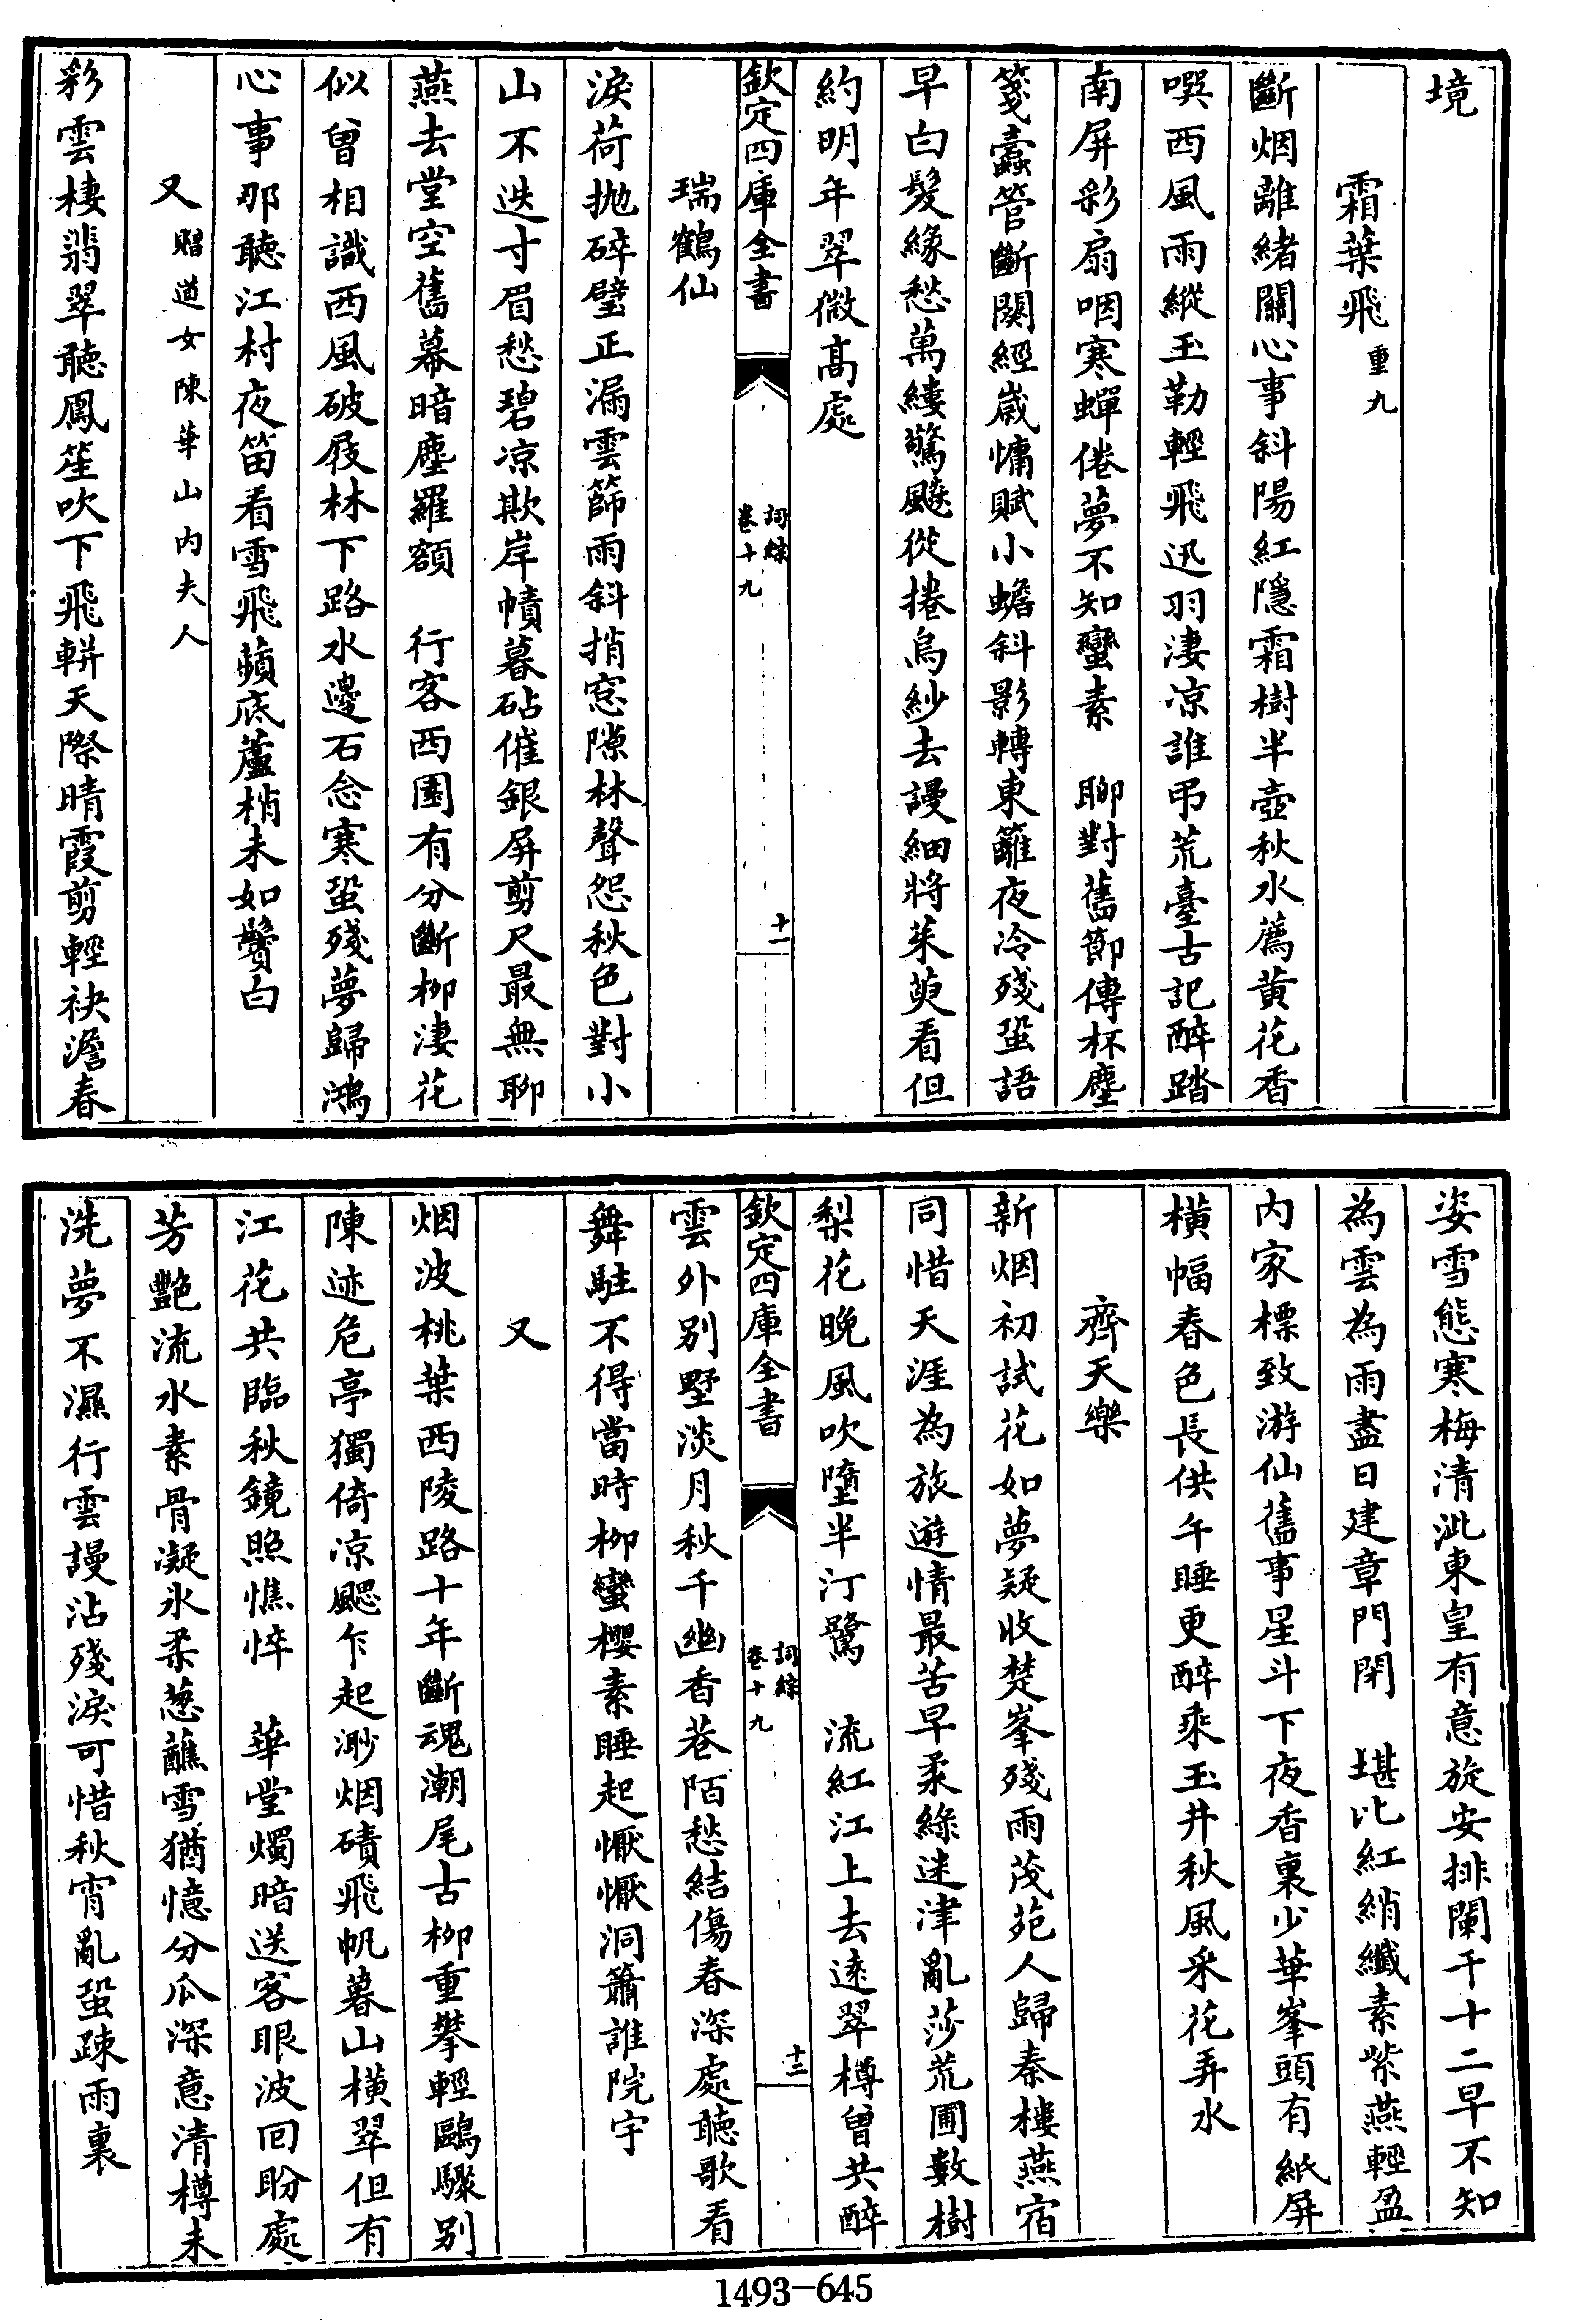 境
霜葉飛重九
斷烟離緒關心事斜陽紅隱霜樹半壺秋水薦黃花香
噀西風雨縱玉勒輕飛迅羽淒凉誰弔荒臺古記醉踏
南屏彩扇咽寒蟬倦夢不知蠻素　聊對舊節傳杯塵
箋蠹管斷闋經歲慵賦小蟾斜影轉東籬夜冷殘蛩語
早白髮緣愁萬縷驚飈從捲烏紗去謾細將茱萸看但
約明年翠微髙處
欽定四庫全書
詞綜
卷十九
十一
瑞鶴仙
淚荷抛碎璧正漏雲篩雨斜捎窓隙林聲怨秋色對小
山不迭寸眉愁碧凉欺岸幘暮砧催銀屏剪尺最無聊
燕去堂空舊幕暗塵羅額　行客西園有分斷柳淒花
似曾相識西風破屐林下路水邊石念寒蛩殘夢歸鴻
心事那聽江村夜笛看雪飛蘋底蘆梢未如鬢白
又贈道女陳華山内夫人
彩雲棲翡翠聽鳳笙吹下飛軿天際晴霞剪輕袂澹春
姿雪態寒梅清泚東皇有意旋安排闌干十二早不知
為雲為雨盡日建章門閉　堪比紅綃纖素紫燕輕盈
内家標致游仙舊事星斗下夜香裏少華峯頭有紙屏
橫幅春色長供午睡更醉乘玉井秋風采花弄水
齊天樂
新烟初試花如夢疑收楚峯殘雨茂苑人歸秦樓燕宿
同惜天涯為旅遊情最苦早柔綠迷津亂莎荒圃數樹
梨花晚風吹墮半汀鷺　流紅江上去遠翠樽曾共醉
欽定四庫全書
詞綜
卷十九
十二
雲外别墅淡月秋千幽香巷陌愁結傷春深處聽歌看
舞駐不得當時柳蠻櫻素睡起懨懨洞簫誰院宇
又
烟波桃葉西陵路十年斷魂潮尾古柳重攀輕鷗驟别
陳迹危亭獨倚凉颸乍起渺烟磧飛帆暮山橫翠但有
江花共臨秋鏡照憔悴　華堂燭暗送客眼波回盼處
芳艷流水素骨凝氷柔葱蘸雪猶憶分瓜深意清樽未
洗夢不濕行雲謾沾殘淚可惜秋宵亂蛩踈雨裏
1493-645